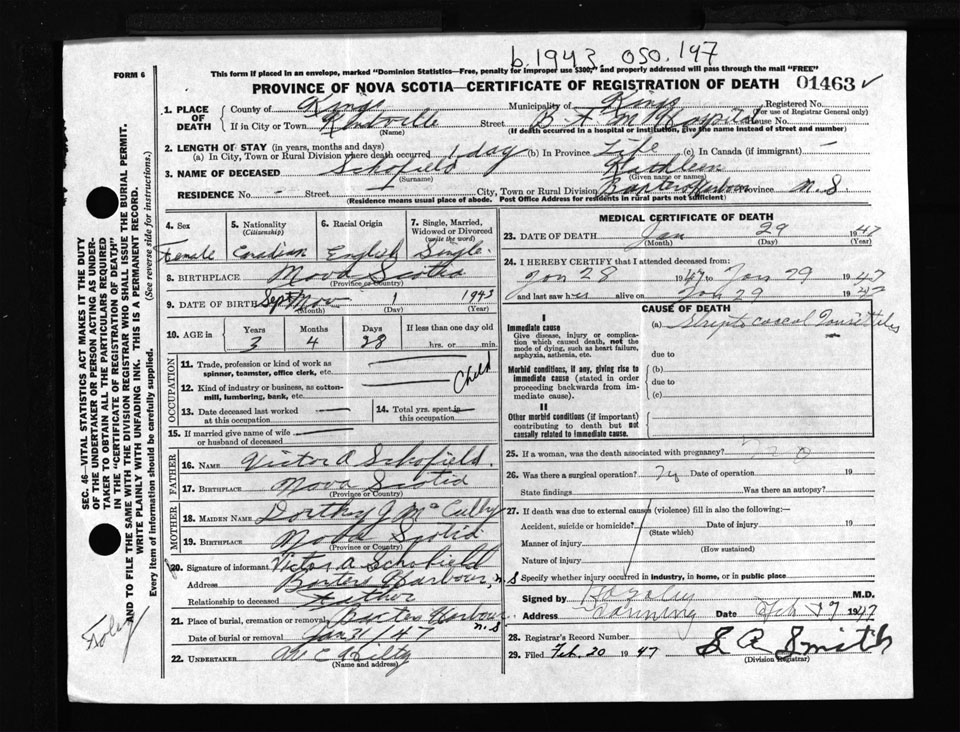 b. 1943 050. 147
FORM 6
This form if placed in an envelope, marked "Dominion Statistics—Free, penalty for improper use $300," and properly addressed will pass through the mail "FREE"
PROVINCE OF NOVA SCOTIA—CERTIFICATE OF REGISTRATION OF DEATH 01463
1. PLACE OF DEATH County of Kings Municipality of Kings Registered No.
(For use of Registrar General only)
If in City or Town Kentville Street B F M Hospital House No.
(Name) (If death occurred in a hospital or institution, give the name instead of street and number)
2. LENGTH OF STAY (in years, months and days)
(a) In City, Town or Rural Division where death occurred 1 day (b) In Province Life (c) In Canada (if immigrant) —
3. NAME OF DECEASED Schofield Kathleen
(Surname) (Given name or names)
RESIDENCE No. - Street City, Town or Rural Division Harbour Province N.S
(Residence means usual place of abode. Post Office Address for residents in rural parts not sufficient)
4. Sex 5. Nationality (Citizenship) 6. Racial Origin 7. Single, Married, Widowed or Divorced (write the word)
Female Canadian English Single.
8. BIRTHPLACE Nova Scotia
(Province or Country)
9. DATE OF BIRTH Sept Nov 1 1943
(Month) (Day) (Year)
10. AGE in Years Months Days If less than one day old
3 4 28 hrs. or min.
OCCUPATION
11. Trade, profession or kind of work as spinner, teamster, office clerk, etc.
Child
12. Kind of industry or business, as cotton-mill, lumbering, bank, etc.
13. Date deceased last worked at this occupation — 14. Total yrs. spent in this occupation —
15. If married give name of wife or husband of deceased —
FATHER
16. NAME Victor A Schofield.
17. BIRTHPLACE Nova Scotia
(Province or Country)
MOTHER
18. MAIDEN NAME Dorthy J McCully
19. BIRTHPLACE Nova Scotia
(Province or Country)
20. Signature of informant Victor A Schofield
Address Harbour, n S
Relationship to deceased Father
21. Place of burial, cremation or removal Harbour n.S
Date of burial or removal Jan 31/47
22. UNDERTAKER
(Name and address)
MEDICAL CERTIFICATE OF DEATH
23. DATE OF DEATH Jan 29 1947
(Month) (Day) (Year)
24. I HEREBY CERTIFY that I attended deceased from:
Jan 28 1947 to Jan 29 1947
and last saw her alive on Jan 29 1947
CAUSE OF DEATH
I
Immediate cause
Give disease, injury or complication which caused death, not the mode of dying, such as heart failure, asphyxia, asthenia, etc.
(a) Streptococcal Tonsillitis
due to
Morbid conditions, if any, giving rise to immediate cause (stated in order proceeding backwards from immediate cause).
(b)
due to
(c)
II
Other morbid conditions (if important) contributing to death but not causally related to immediate cause.
25. If a woman, was the death associated with pregnancy? no
26. Was there a surgical operation? Date of operation 19
State findings Was there an autopsy?
27. If death was due to external causes (violence) fill in also the following:—
Accident, suicide or homicide? Date of injury 19
(State which)
Manner of injury
(How sustained)
Nature of injury
Specify whether injury occurred in industry, in home, or in public place
Signed by M.D.
Address Canning Date Feb 17 1947
28. Registrar's Record Number
29. Filed Feb. 20 1947 S A Smith
(Division Registrar)
SEC. 46—VITAL STATISTICS ACT MAKES IT THE DUTY OF THE UNDERTAKER OR PERSON ACTING AS UNDERTAKER TO OBTAIN ALL THE PARTICULARS REQUIRED IN THE "CERTIFICATE OF REGISTRATION OF DEATH" AND TO FILE THE SAME WITH THE DIVISION REGISTRAR WHO SHALL ISSUE THE BURIAL PERMIT.
WRITE PLAINLY WITH UNFADING INK. THIS IS A PERMANENT RECORD.
Every item of information should be carefully supplied. (See reverse side for instructions.)
Foley